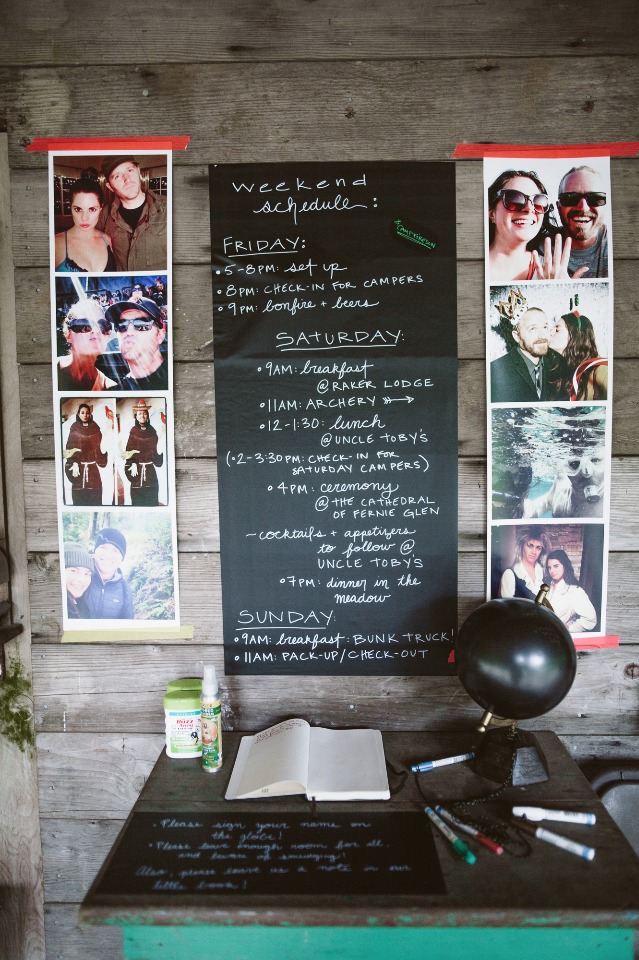 Weekend
schedule:
#CAMPFIREDUN
FRIDAY:
• 5-8PM: set up
• 8PM: CHECK-IN FOR CAMPERS
• 9PM: bonfire + beers
SATURDAY:
• 9AM: breakfast
@ RAKER LODGE
• 11AM: ARCHERY
• 12-1:30: lunch
@ UNCLE TOBY'S
(• 2-3:30PM: CHECK-IN FOR
SATURDAY CAMPERS)
• 4PM: ceremony
@ THE CATHEDRAL
OF FERNIE GLEN
~cocktails + appetizers
to follow @
UNCLE TOBY'S
• 7PM: dinner in the
meadow
SUNDAY:
• 9AM: breakfast: BUNK TRUCK!
• 11AM: PACK-UP/CHECK-OUT
Buzz
Away
• Please sign your name on
the globe!
• Please leave enough room for all,
and beware of smudging!
Also, please leave us a note in our
little book!